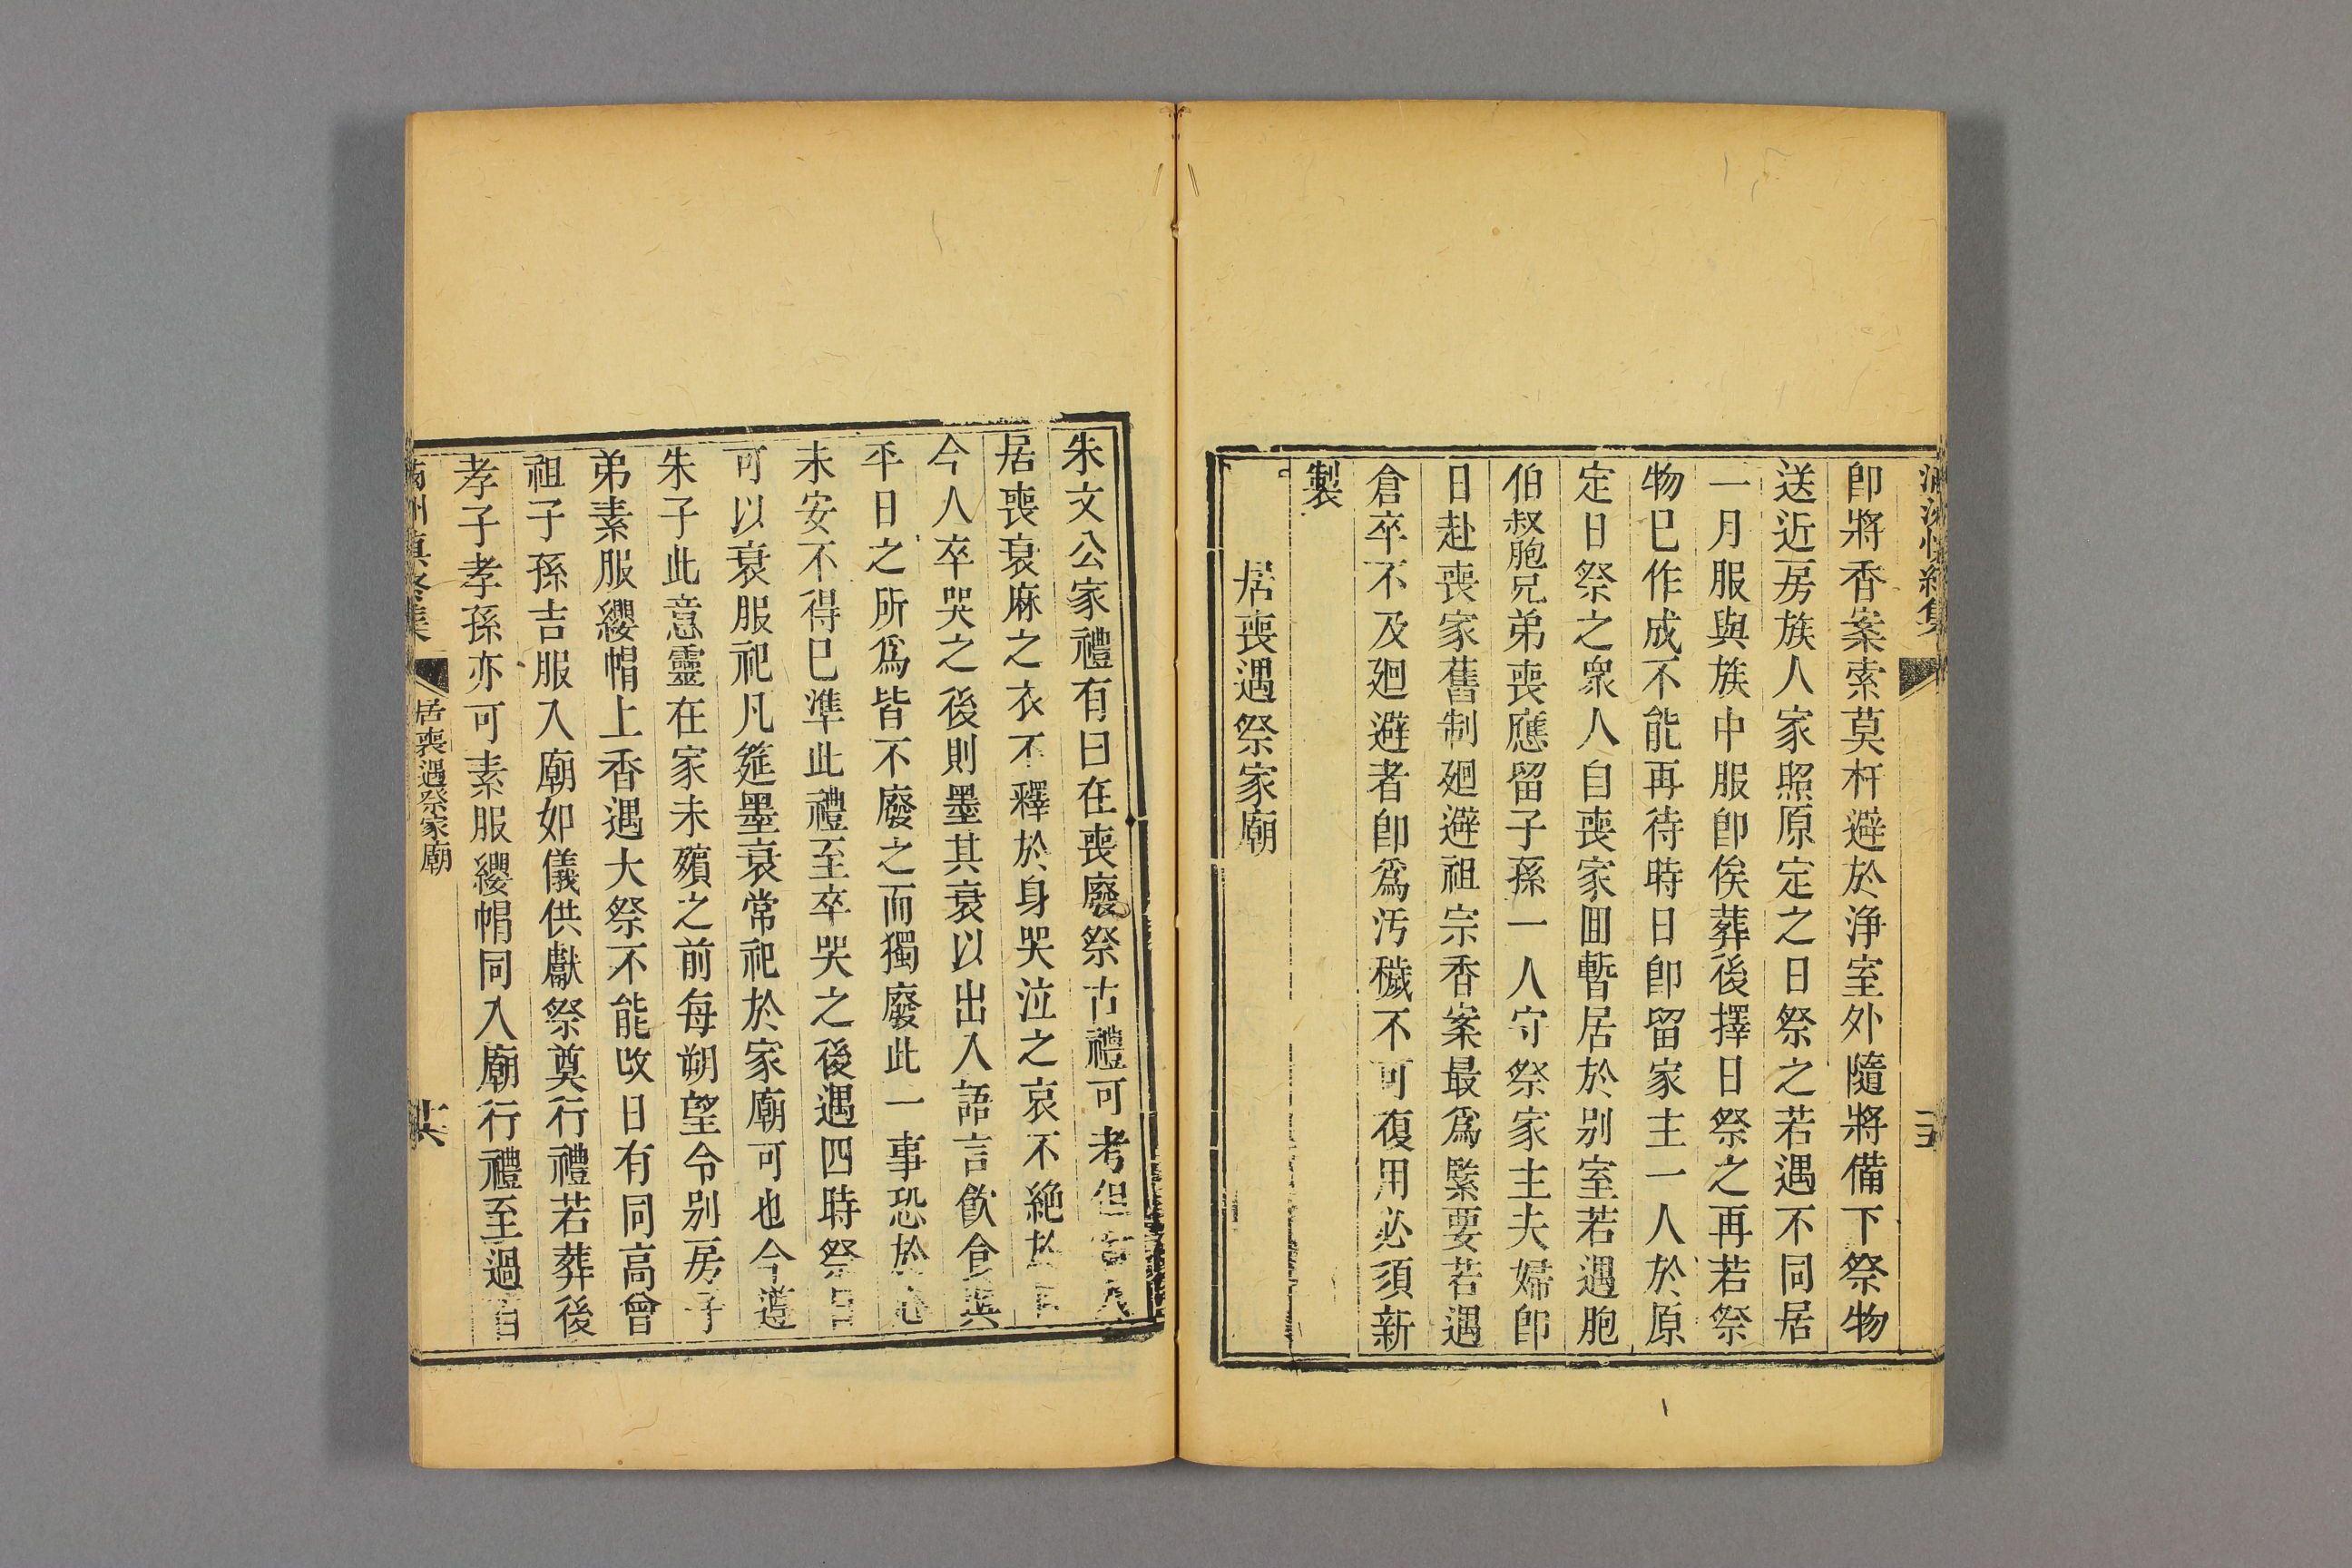 卽將香案索莫杆避於浄室外隨將備下祭物
送近房族人家照原定之日祭之若遇不同居
一月服與族中服卽俟葬後擇日祭之再若祭
物巳作成不能再待時日卽留家主一人於原
定日祭之衆人自喪家囬暫居於别室若遇胞
伯叔胞兄弟喪應留子孫一人守祭家主夫婦卽
日赴喪家舊制廻避祖宗香案最爲緊要若遇
倉卒不及廻避者卽爲汚穢不可復用必須新
製
居喪遇祭家廟
朱文公家禮有曰在喪廢祭古禮可考但古人
居喪衰麻之衣不釋於身哭泣之哀不絶於口
今人卒哭之後則墨其衰以出入語言飲食與
平日之所爲皆不廢之而獨廢此一事恐於心
未安不得巳準此禮至卒哭之後遇四時祭日
可以衰服祀凡筵墨衰常祀於家廟可也今遵
朱子此意靈在家未殯之前每朔望令别房子
弟素服纓帽上香遇大祭不能改日有同高曾
祖子孫吉服入廟如儀供獻祭奠行禮若葬後
孝子孝孫亦可素服纓帽同入廟行禮至過百
居喪遇祭家廟